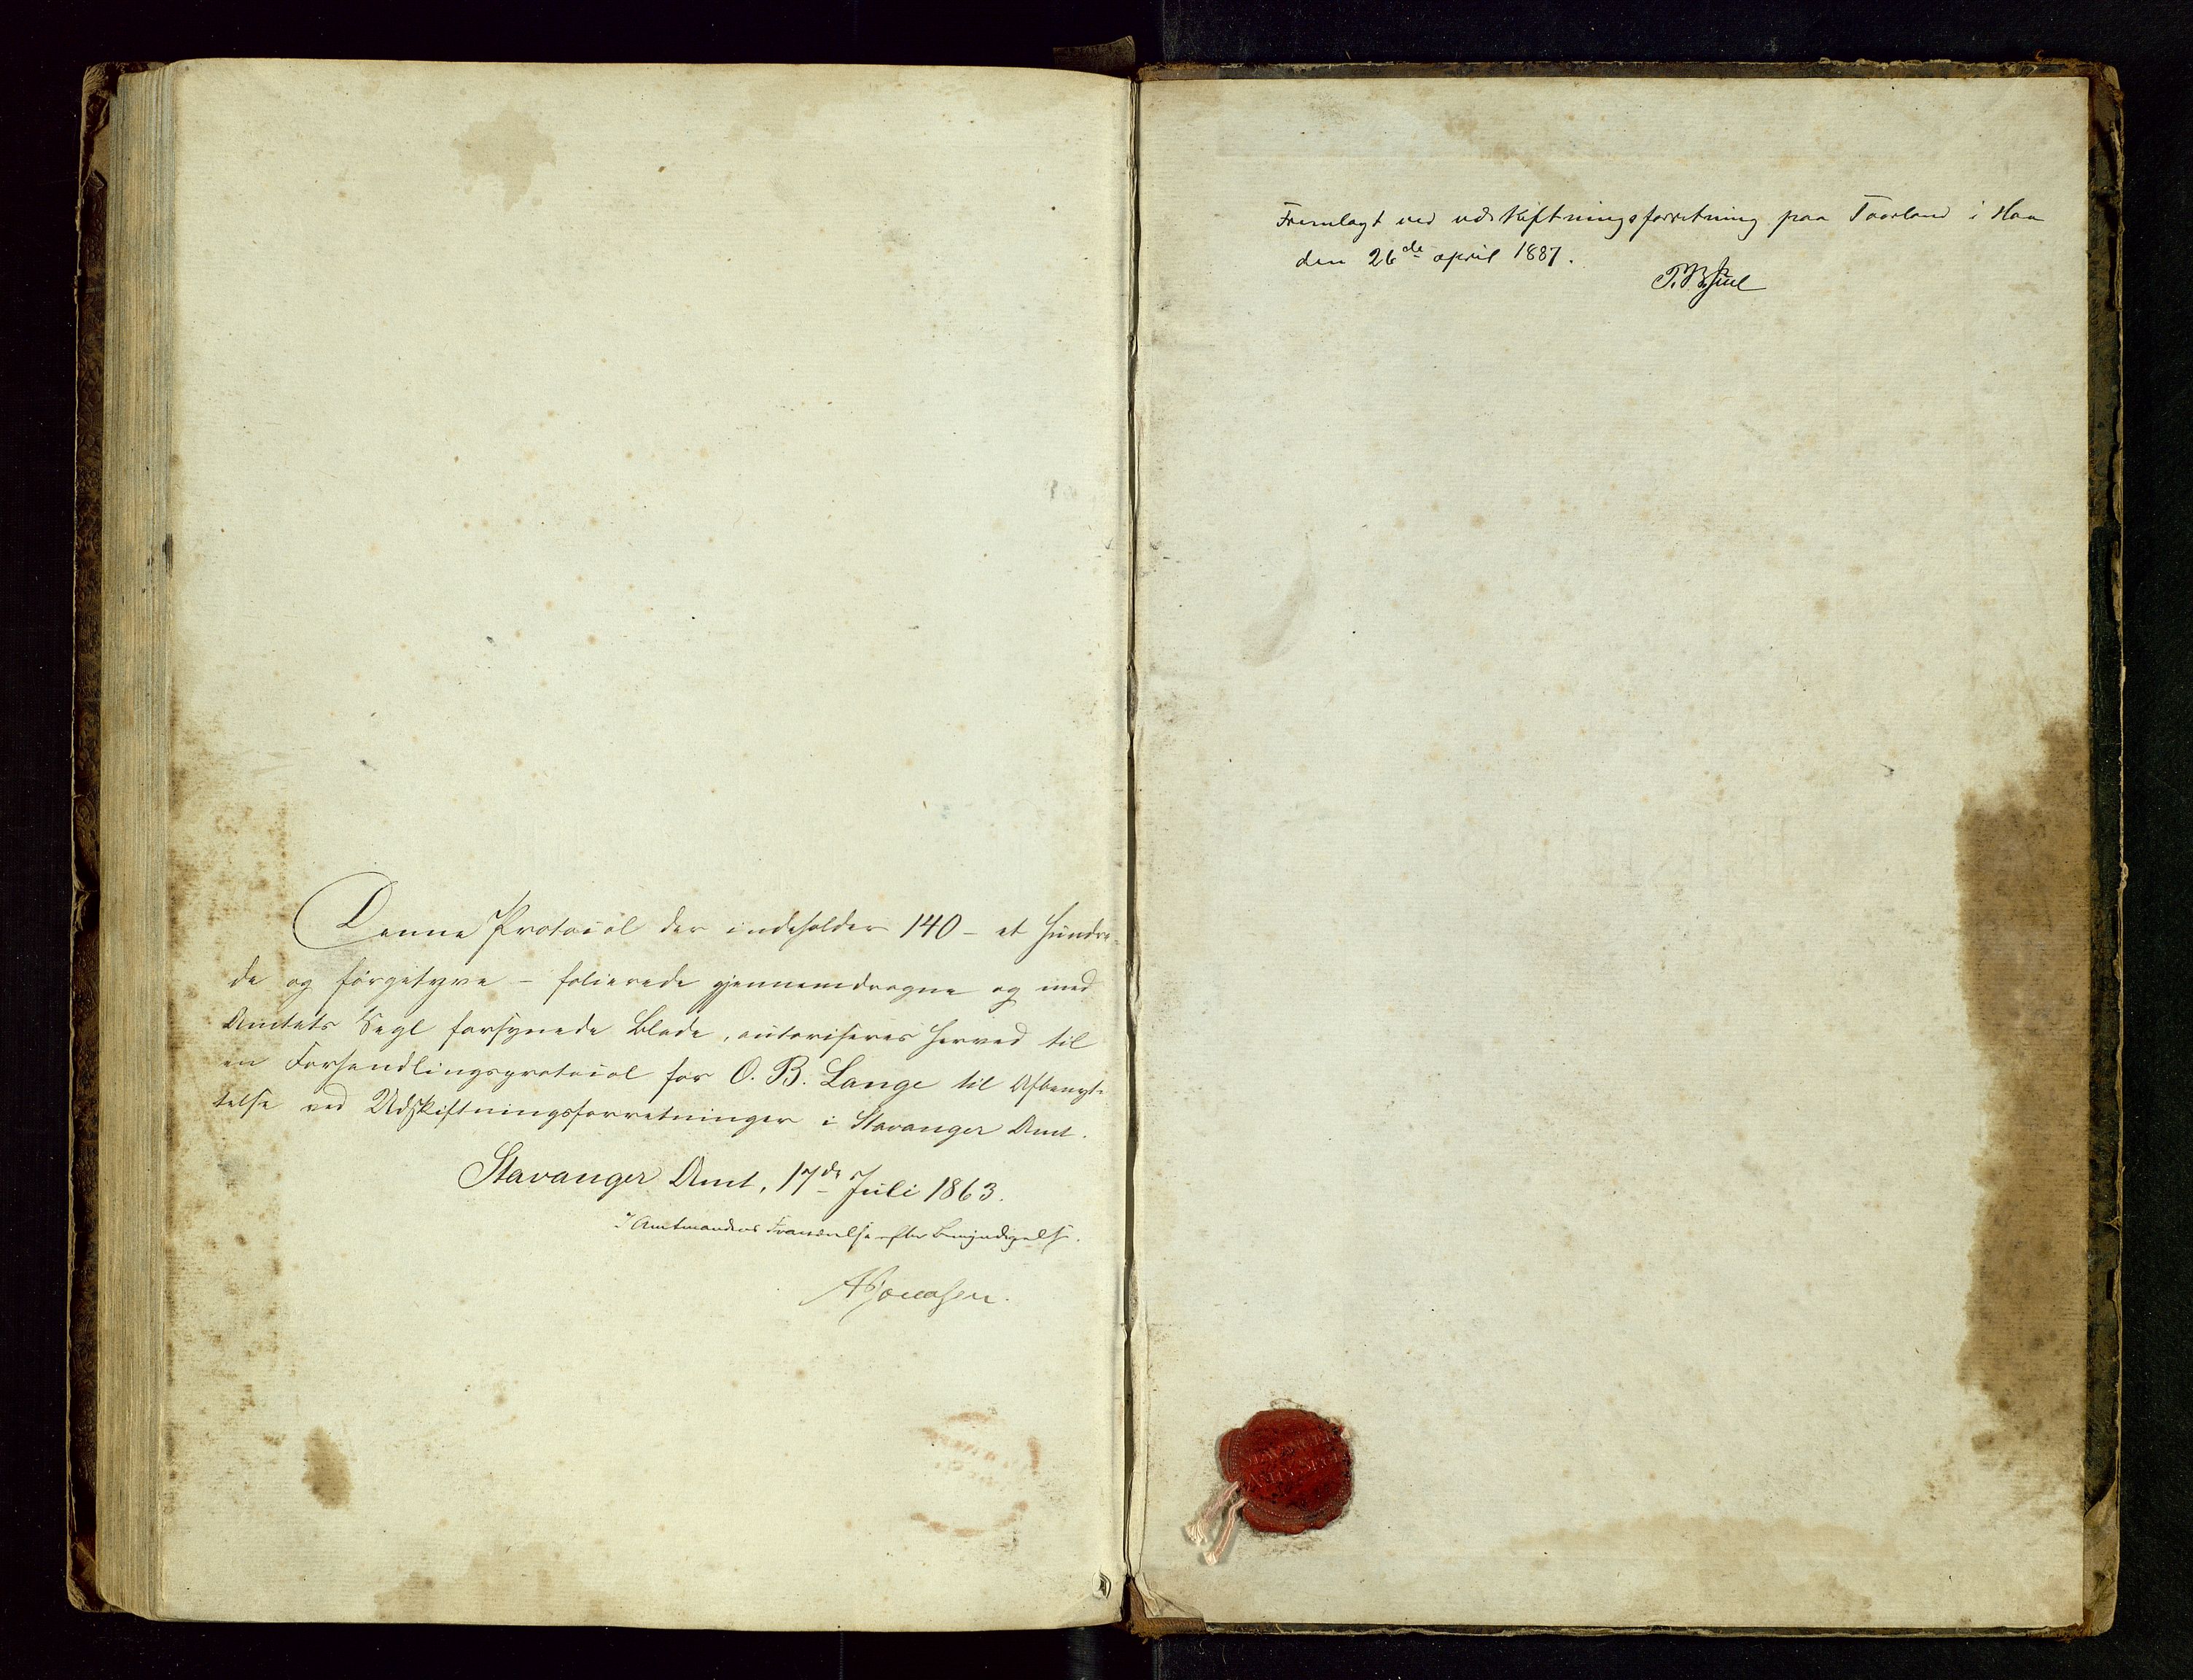 Denne Protocol der indeholder 140 – et Hundre-
de og førgetyve – folierede gjennemdragne og med
Amtets Segl forsynede Blade, autoriseres herved til
en Forhandlingsprotocol for O. B. Lange til Afbenyt-
telse ved Udskiftningsforretninger i Stavanger Amt.
Stavanger Amt, 17de Juli 1863.
I Amtmandens Fraværelse efter Bemyndigelse.
Fremlagt ved udskiftningsforretning paa Taarland i Haa
den 26de april 1887.